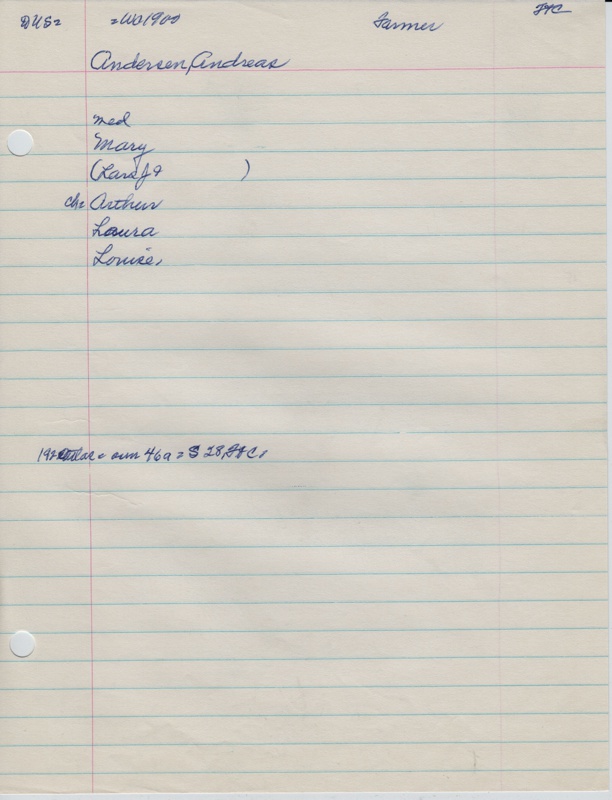 DUS= =WO1900 Farmer FTC
Andersen, Andreas
med
Mary
(Lars J & )
ch= Arthur
Laura
Louise,
atlas = own 46a = S 28, FTC,